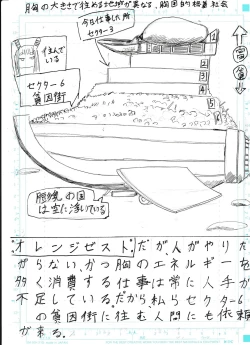 胸の大きさで住める地域が異なる、胸囲的格差社会
今日仕事した所
セクター3
住んで
いる
セクター6
貧困街
富
貧
1
2
3
4
5
の国
は空に浮いている
オレンジゼストだが、人がやりた
がらない、かつ胸のエネルギーを
多く消費する仕事は常に人手が
不足している。だから私らセクター6
の貧困街に住む人間にも依頼
が来る。